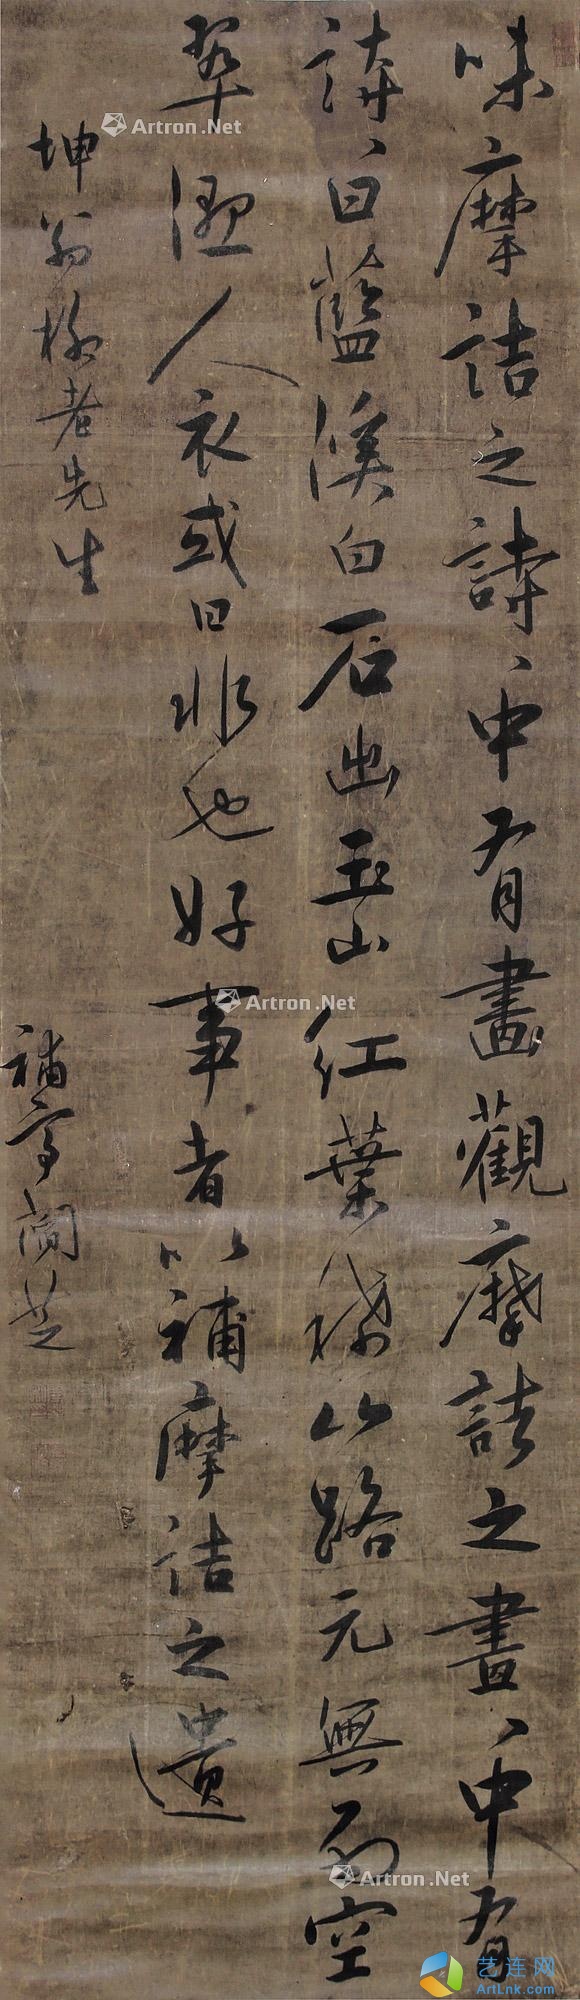 味摩詰之詩、中有畫觀摩詰之畫、中有
詩、曰藍溪白石出玉山紅葉稀山路元無雨空
翠濕人衣或曰非也好事者以補摩詰之遺
坤翁 老先生
補亭閻芝
Artron.Net
Artron.Net
Artron.Net
艺连网
ArtLnk.Com